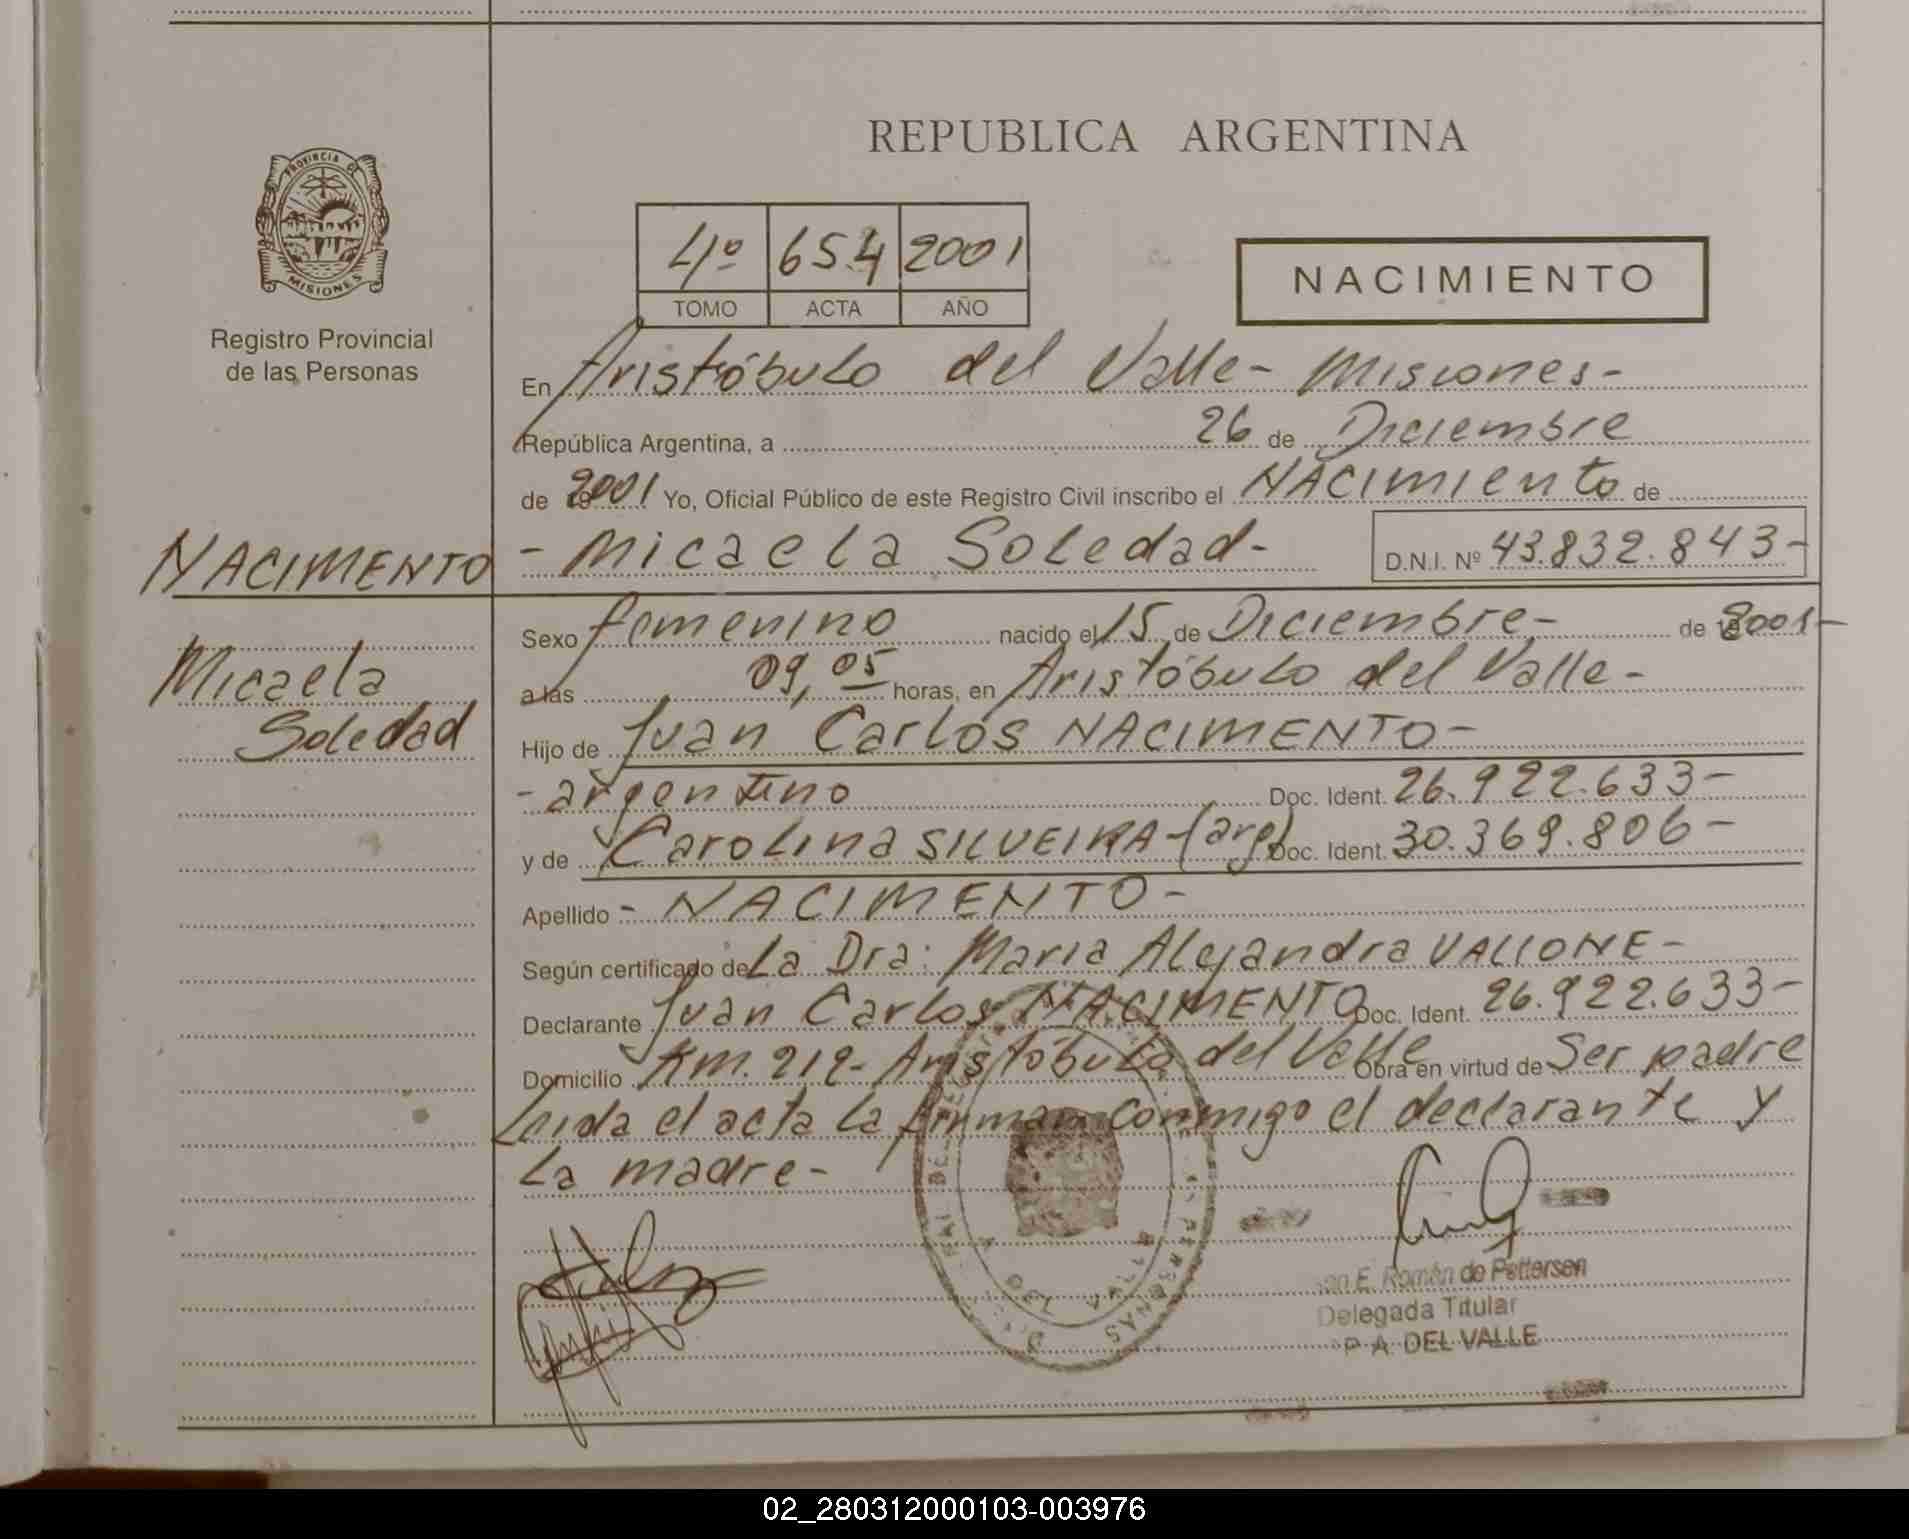 REPUBLICA ARGENTINA
PROVINCIA DE
MISIONES
Registro Provincial
de las Personas
4º 654 2001
TOMO ACTA AÑO
NACIMIENTO
En Aristóbulo del Valle- Misiones-
República Argentina, a 26 de Diciembre
de 2001 Yo, Oficial Público de este Registro Civil inscribo el NACIMIENTO de
- Micaela Soledad- D.N.I. Nº 43.832.843-
NACIMENTO
Micaela
Soledad
Sexo femenino nacido el 15 de Diciembre- de 2001-
a las 09,05 horas, en Aristóbulo del Valle-
Hijo de Juan Carlos NACIMENTO-
- argentino Doc. Ident. 26.922.633-
y de Carolina SILVEIRA-(arg) Doc. Ident. 30.369.806-
Apellido - NACIMENTO-
Según certificado de La Dra: Maria Alejandra VALLONE-
Declarante Juan Carlos NACIMENTO Doc. Ident. 26.922.633-
Domicilio Km. 212- Aristóbulo del Valle Obra en virtud de Ser padre
Leida el acta la firman conmigo el declarante y
La madre-
E. Román de Pettersen
Delegada Titular
P. A. DEL VALLE
02_280312000103-003976